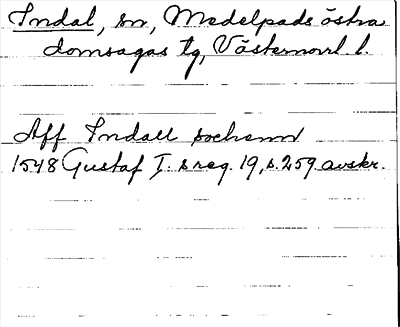 Indal, sn, Medelpads östra
domsagas tg, Västernorrl. l.
Aff Indall sochenn
1548 Gustaf I. s reg. 19, s. 259 avskr.